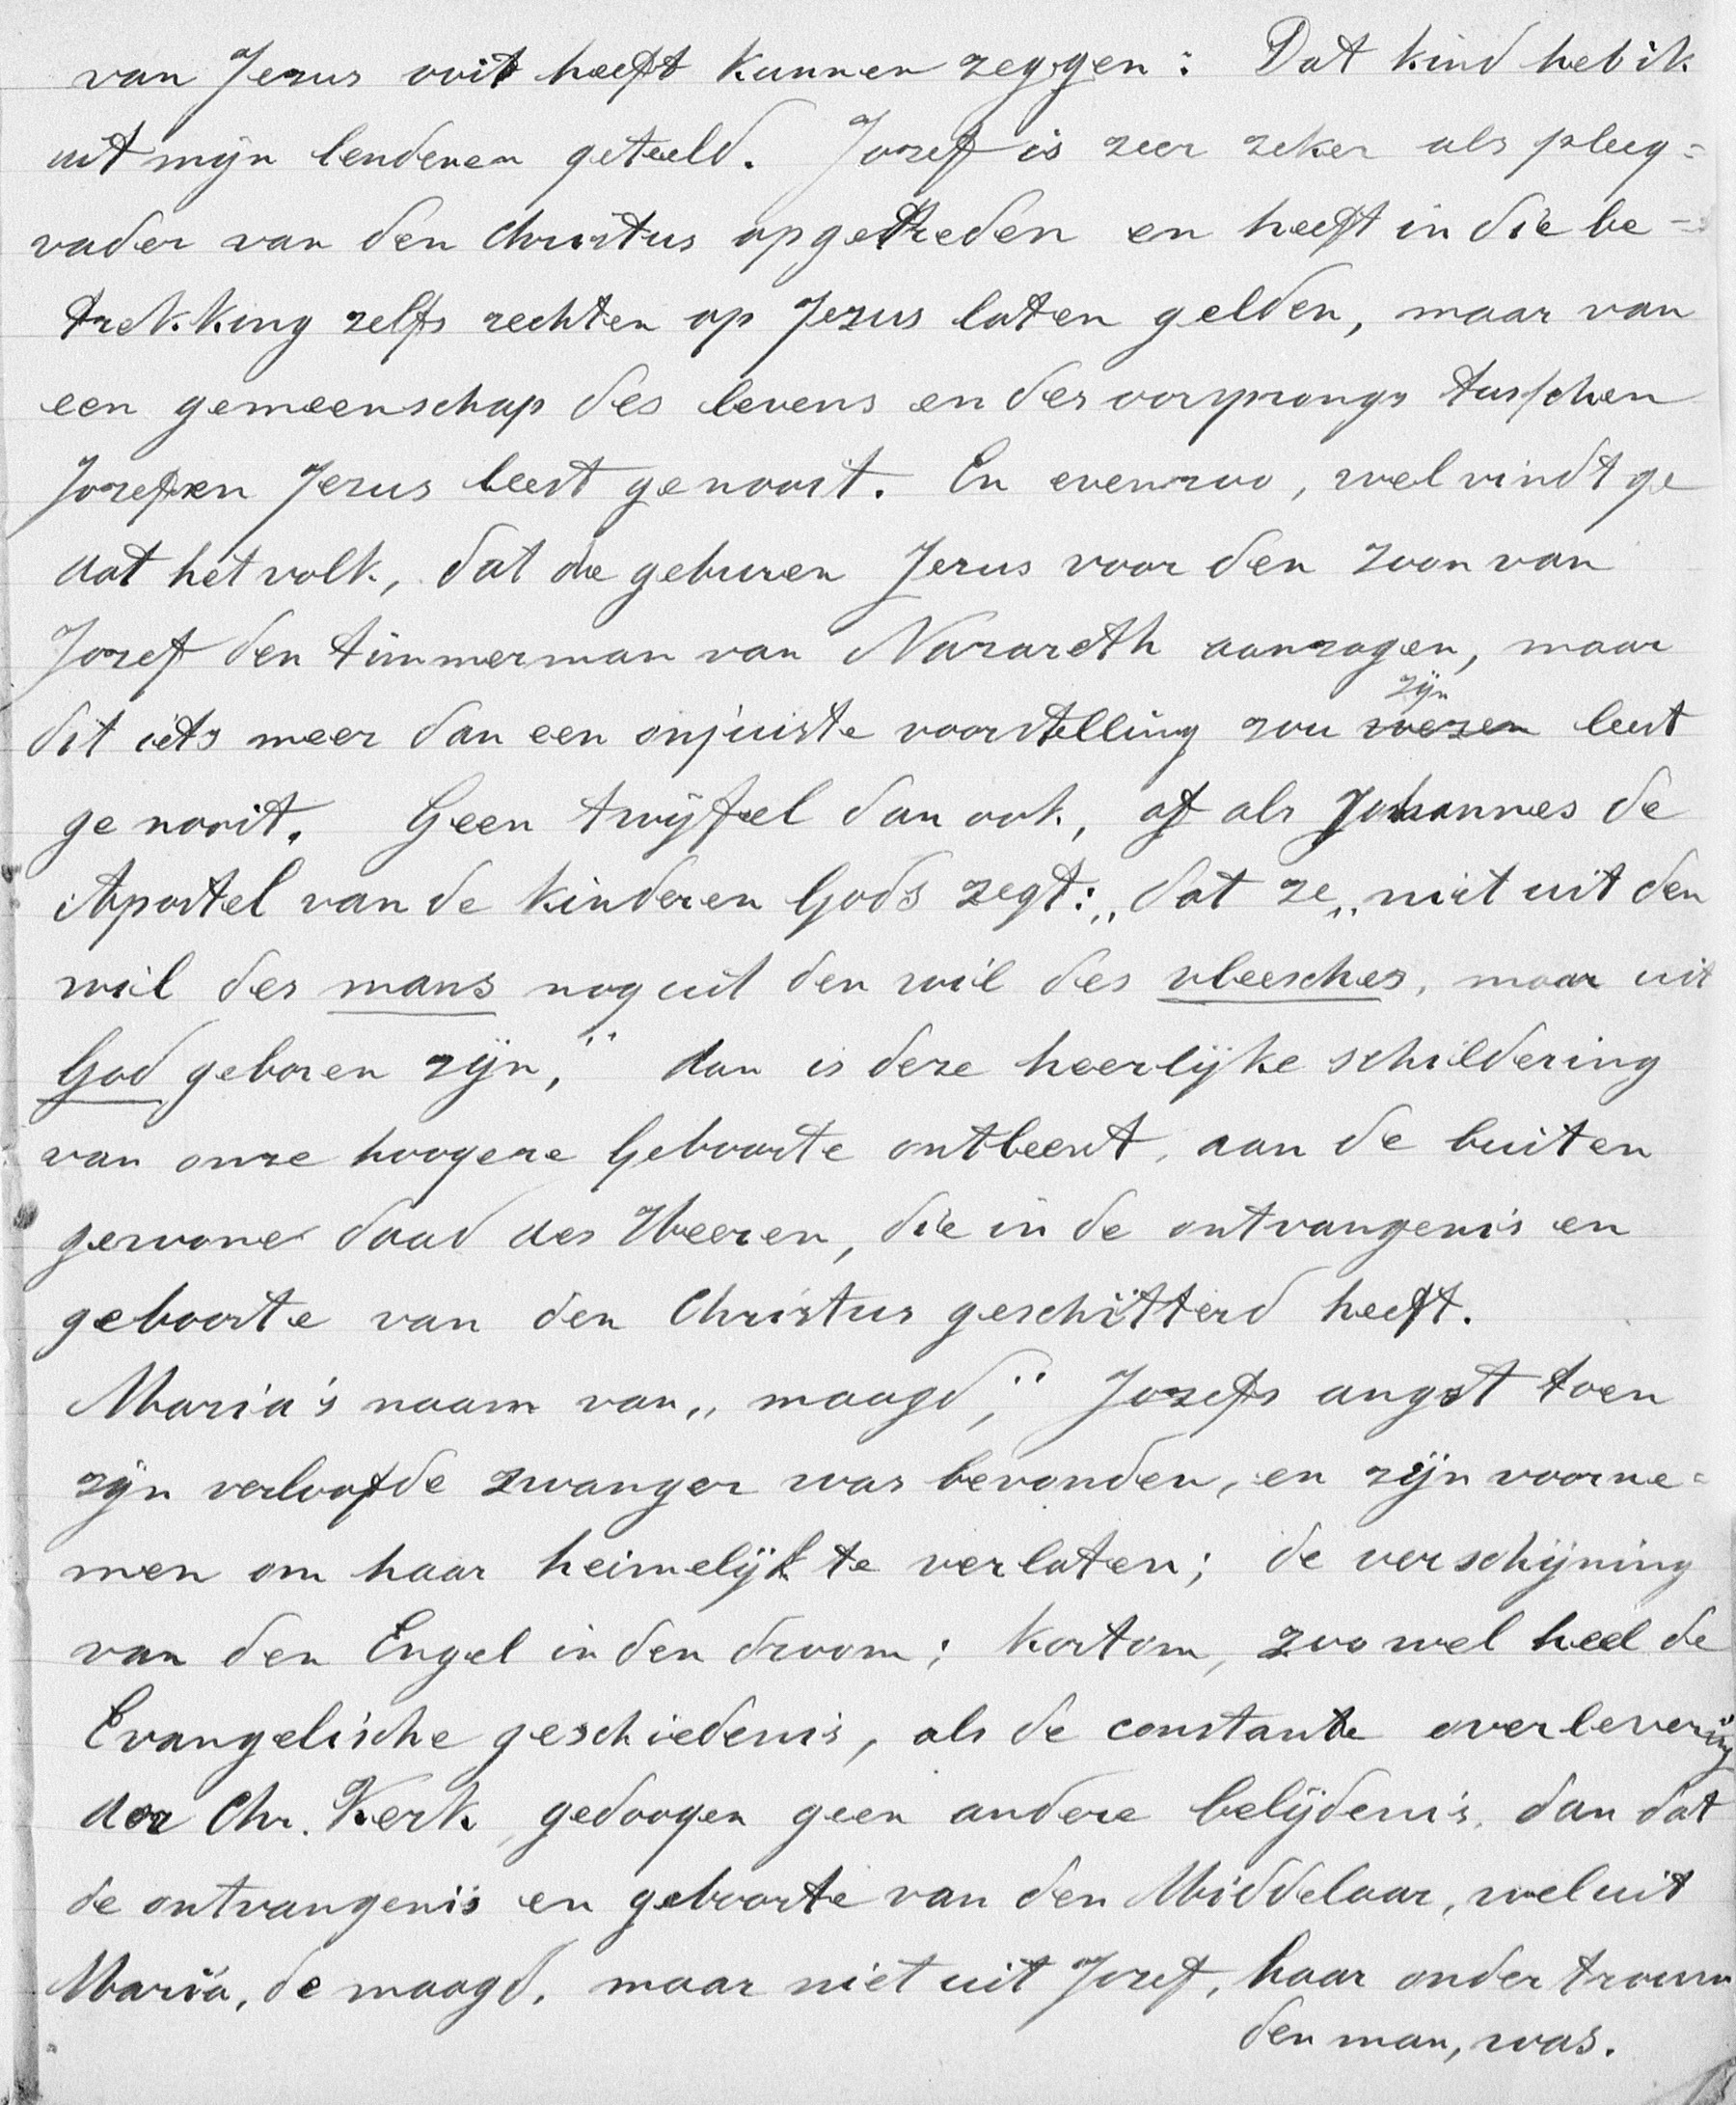 van Jezus ooit heeft kunnen zeggen: Dat kind heb ik
uit mijn lendenen geteeld. Jozef is zeer zeker als pleeg=
vader van den Christus opgetreden en heeft in die be=
trekking zelfs rechten op Jezus laten gelden, maar van
een gemeenschap des levens en des oorsprongs tusschen
Jozef en Jezus leest ge nooit. En evenzoo, wel vindt ge
dat het volk, dat de geburen Jezus voor den zoon van
Jozef den timmerman van Nazareth aanzagen, maar
dit iets meer dan een onjuiste voorstelling zou wezen zijn leest
ge nooit. Geen twijfel dan ook, of als Johannes de
Apostel van de kinderen Gods zegt: „dat ze „niet uit den
wil des mans nog uit den wil des vleesches, maar uit
God geboren zijn," dan is deze heerlijke schildering
van onze hoogere Geboorte ontleent, aan de buiten
gewone daad des Heeren, die in de ontvangenis en
geboorte van den Christus geschitterd heeft.
Maria's naam van „maagd," Jozefs angst toen
zijn verloofde zwanger was bevonden, en zijn voorne=
men om haar heimelijk te verlaten; de verschijning
van den Engel in den droom; kortom, zoowel heel de
Evangelische geschiedenis, als de constante overlevering
der Chr. Kerk, gedoogen geen andere belijdenis, dan dat
de ontvangenis en geboorte van den Middelaar, wel uit
Maria, de maagd, maar niet uit Jozef, haar ondertrouw
den man, was.